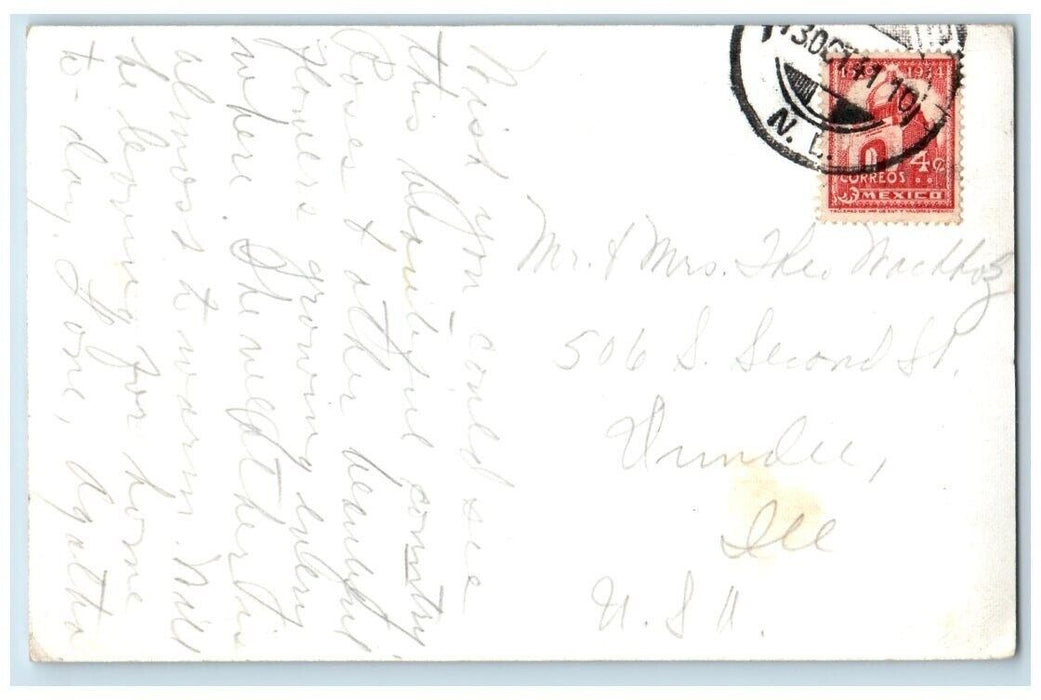 Wish you could see
this beautiful country.
Roses & other beautiful
flowers growing every
where. The weather is
almost to warm. Will
be leaving for home
to-day. Love, Agatha
13 OCT 41 10
N. L.
1934
4¢
CORREOS
MEXICO
Mr. & Mrs. Theo Wachholz
506 S. Second St.
Dundee,
Ill
U.S.A.